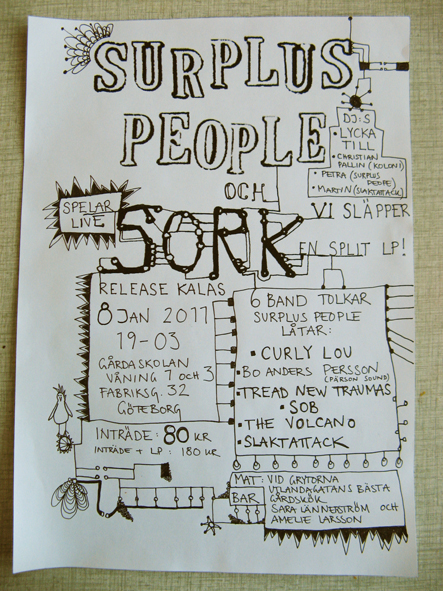 SURPLUS
PEOPLE
OCH
SPELAR
LIVE
SORK
DJ:S
• LYCKA
TILL
• CHRISTIAN
PALLIN (KOLONI)
• PETRA (SURPLUS
PEOPE)
• MARTIN (SLAKTATTACK)
VI SLÄPPER
EN SPLIT LP!
RELEASE KALAS
8 JAN 2011
19-03
GÅRDASKOLAN
VÅNING 1 OCH 3
FABRIKSG. 32
GÖTEBORG
INTRÄDE: 80 KR
INTRÄDE + LP: 180 KR
6 BAND TOLKAR
SURPLUS PEOPLE
LÅTAR:
• CURLY LOU
• BO ANDERS PERSSON
(PÄRSON SOUND)
• TREAD NEW TRAUMAS
• SOB
• THE VOLCANO
• SLAKTATTACK
MAT: VID GRYTORNA
UTLANDAGATANS BÄSTA
BAR GÅRDSKÖK
SARA LÄNNERSTRÖM OCH
AMELIE LARSSON